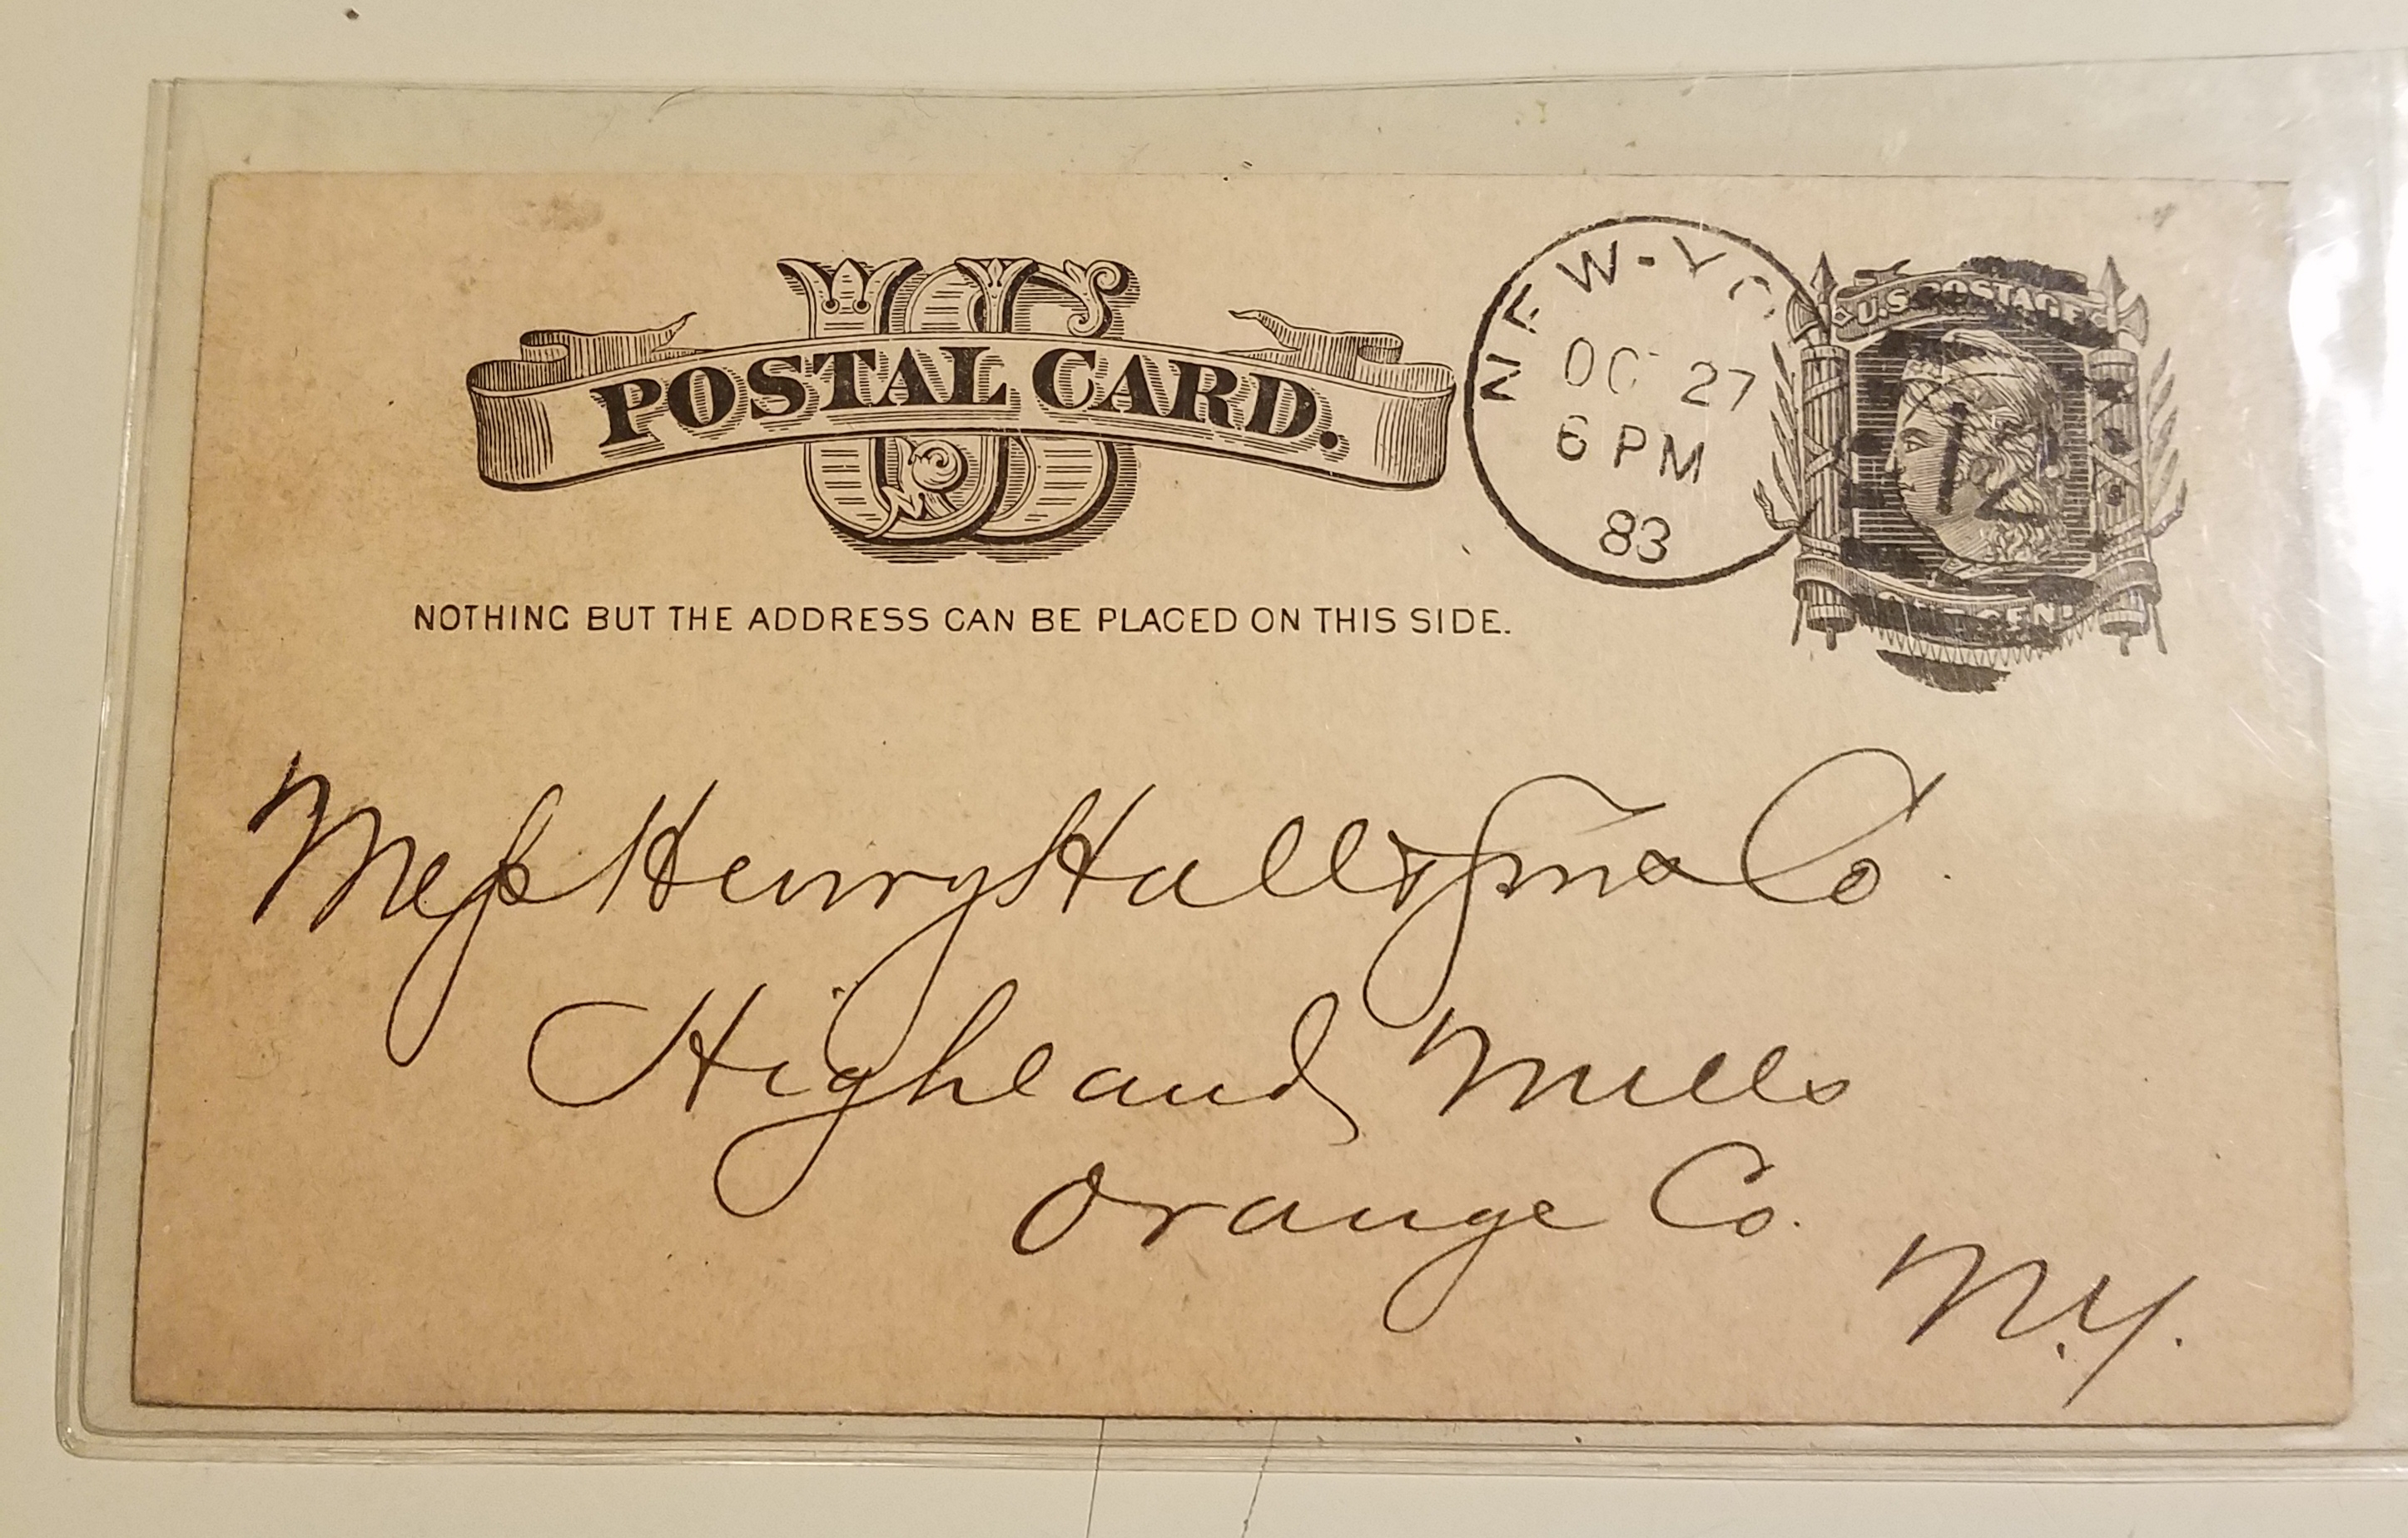 US
POSTAL CARD.
NOTHING BUT THE ADDRESS CAN BE PLACED ON THIS SIDE.
NEW-YO
OCT 27
6 PM
83
U.S. POSTAGE
ONE CENT
12
Mess Henry Hall & Son & Co.
Highland Mills
Orange Co.
N.Y.